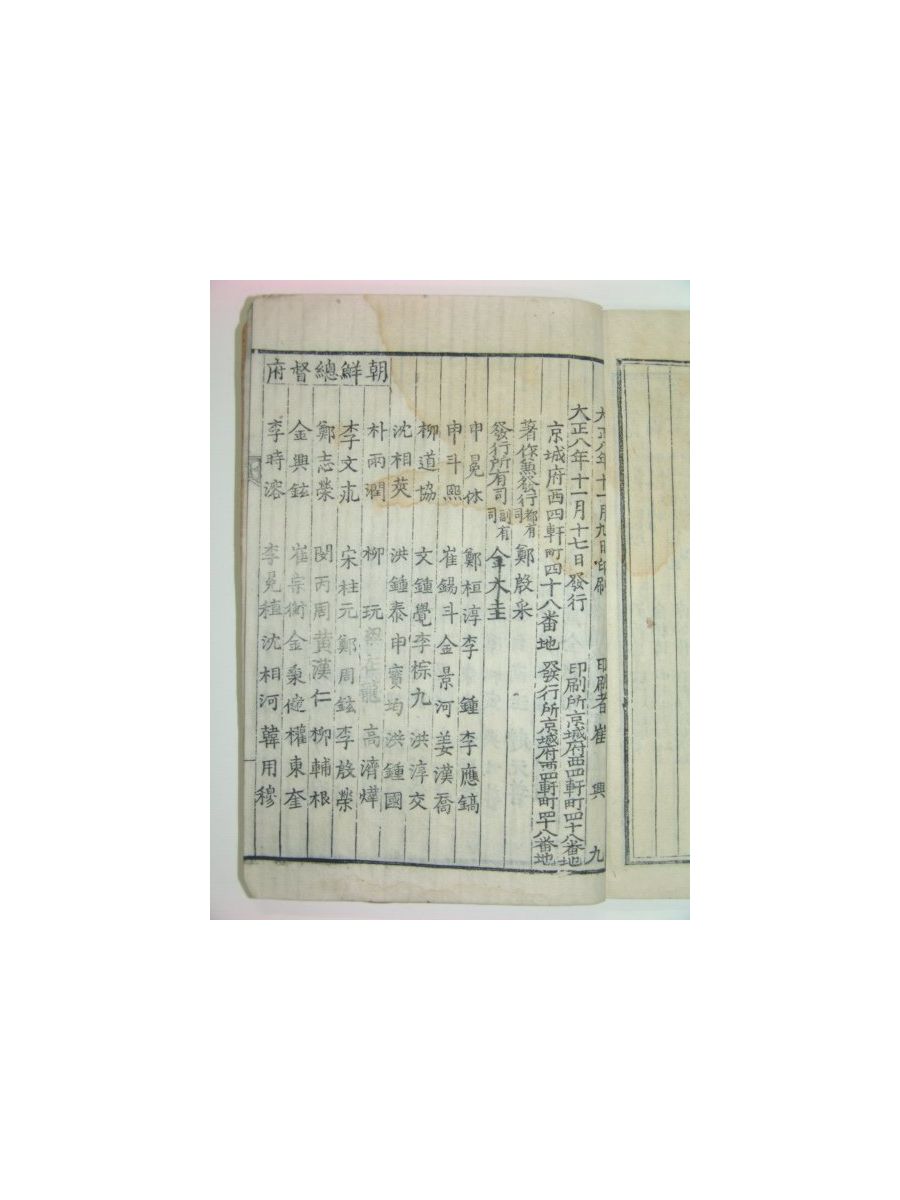 大正八年十一月九日印刷 印刷者 崔 興 九
大正八年十一月十七日發行 印刷所京城府西四軒町四十八番地
京城府西四軒町四十八番地 發行所京城府西四軒町四十八番地
著作兼發行都有司 鄭啟采
發行所有司副有司 金大圭
申冕休 鄭桓淳 李 鍾 李應鎬
申斗熙 崔錫斗 金景河 姜漢喬
柳道協 文鍾覺 李悰九 洪淳交
沈相莢 洪鍾泰 申寶均 洪鍾國
朴雨潤 柳 玩 在龍 高濟煒
李文 宋柱元 鄭周鉉 李啟榮
鄭志榮 閔丙周 黃漢仁 柳輔根
金興鉉 崔宗衡 金秉 權東奎
李時溶 李冕植 沈相河 韓用穆
朝鮮總督府